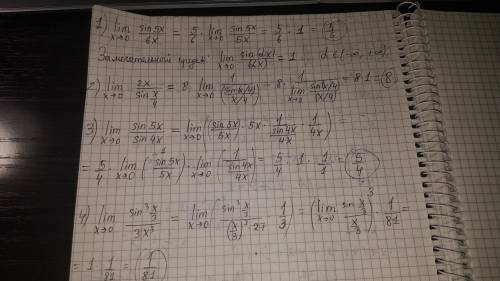 1) lim x→0 sin 5x / 6x = 5/6 · lim x→0 sin 5x / 5x = 5/6 · 1 = 5/6
Замечательный предел lim x→0 sin(αx) / (αx) = 1 α ∈ (-∞, +∞)
2) lim x→0 2x / sin x/4 = 8 · lim x→0 1 / (sin(x/4) / x/4) = 8 · 1 / (lim x→0 sin(x/4) / (x/4)) = 8·1 = 8
3) lim x→0 sin 5x / sin 4x = lim x→0 ((sin 5x / 5x) · 5x · 1 / (sin 4x / 4x) · 1/4x) =
= 5/4 · lim x→0 (sin 5x / 5x) · lim x→0 (1 / (sin 4x / 4x)) = 5/4 · 1 · 1/1 = 5/4
4) lim x→0 sin³ x/3 / 3x³ = lim x→0 (sin³ x/3 / ((x/3)³ · 27) · 1/3) = (lim x→0 sin x/3 / x/3)³ · 1/81 =
= 1 · 1/81 = 1/81